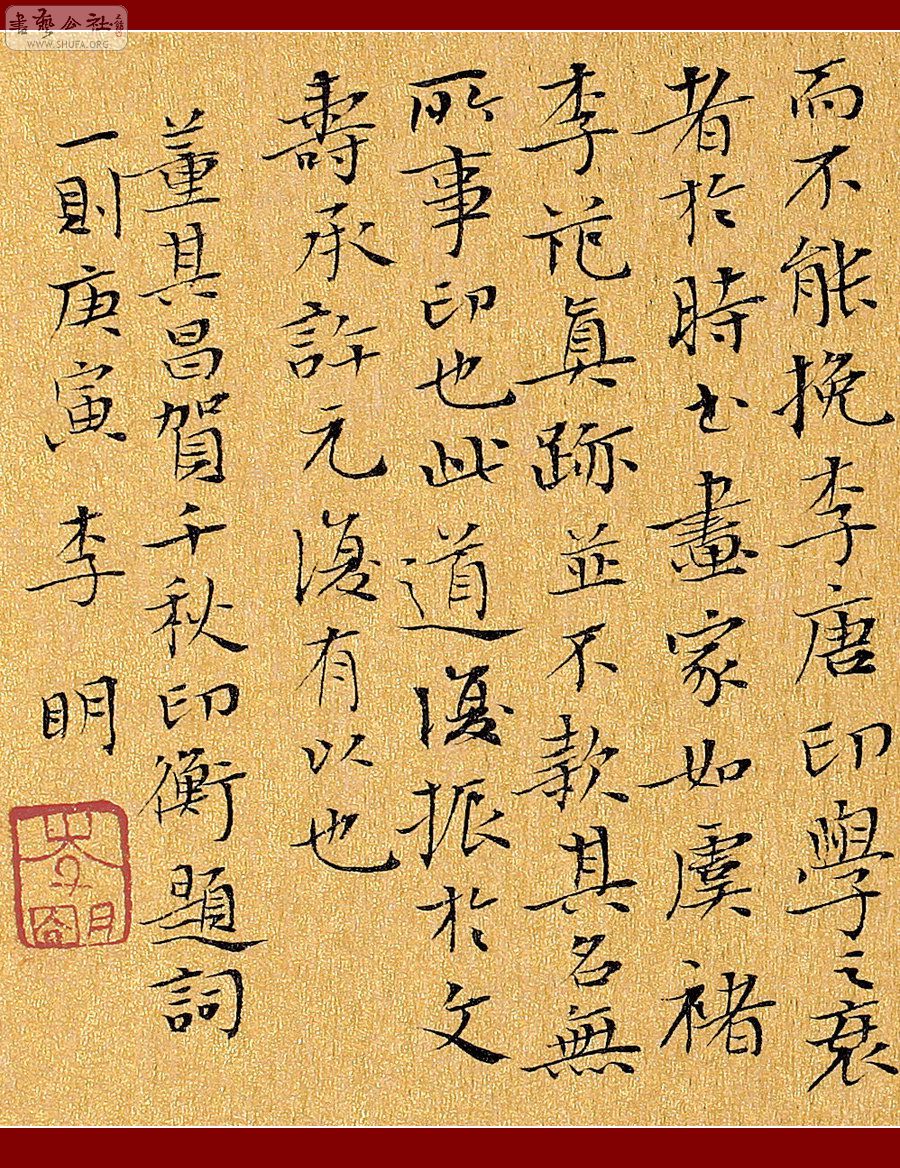 書藝公社
WWW.SHUFA.ORG
而不能挽李唐印學之衰
者於時书畫家如虞褚
李范真跡並不款其名無
所事印也此道復振於文
壽承許元復有以也
董其昌賀千秋印衡題詞
一則庚寅 李明